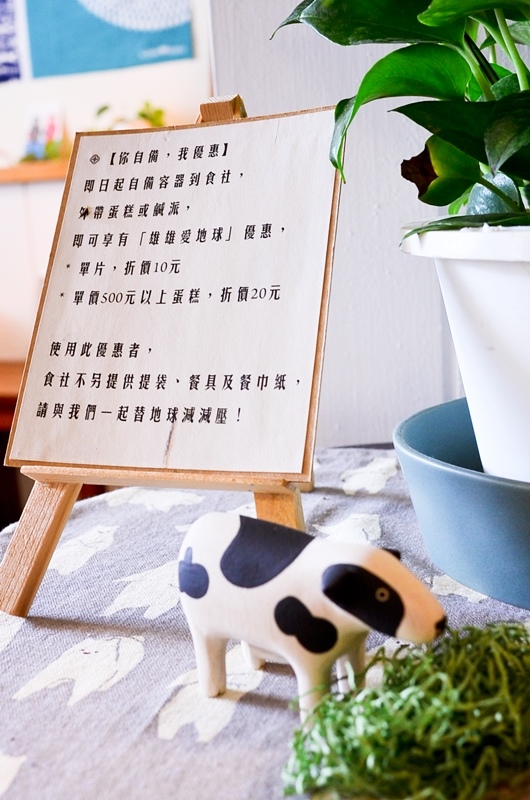 ※【你自備，我優惠】
即日起自備容器到食社，
外帶蛋糕或鹹派，
即可享有「雄雄愛地球」優惠，
* 單片，折價10元
* 單價500元以上蛋糕，折價20元
使用此優惠者，
食社不另提供提袋、餐具及餐巾紙，
請與我們一起替地球減減壓！